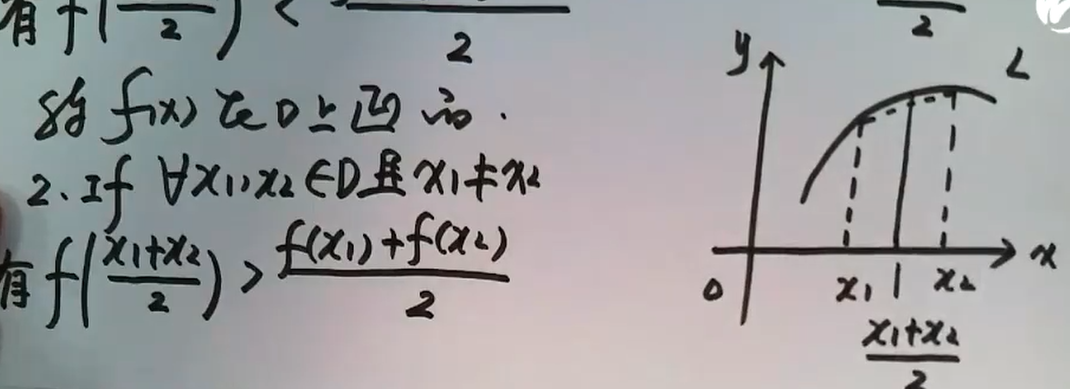 有 f(—/2) < —/2
称 f(x) 在 D 上凹的.
2. If ∀x₁, x₂ ∈ D 且 x₁ ≠ x₂
有 f((x₁+x₂)/2) > (f(x₁)+f(x₂))/2
2
y
L
0
x₁
x₂
x
(x₁+x₂)/2